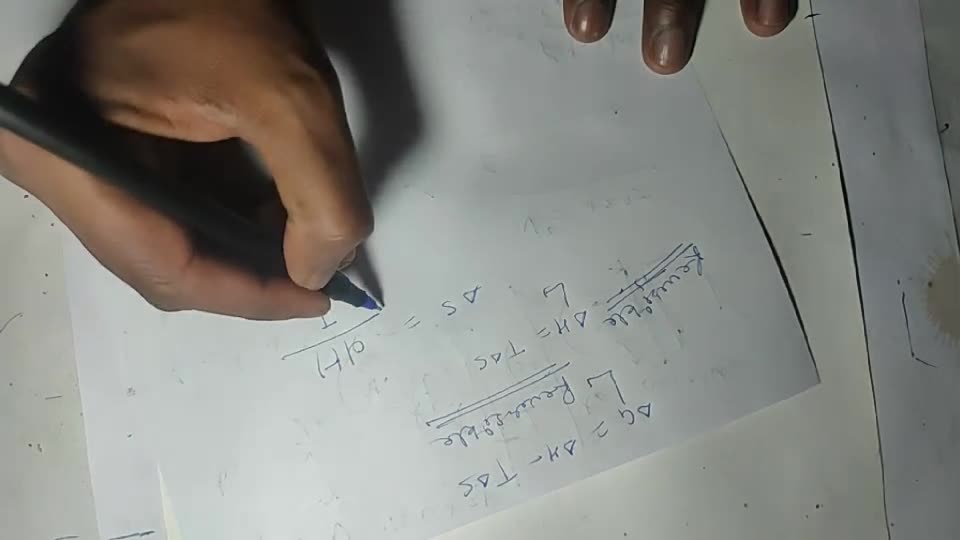 ΔG = ΔH - TΔS
↳ Reversible
Reversible
↳ ΔH = TΔS
ΔS =
T